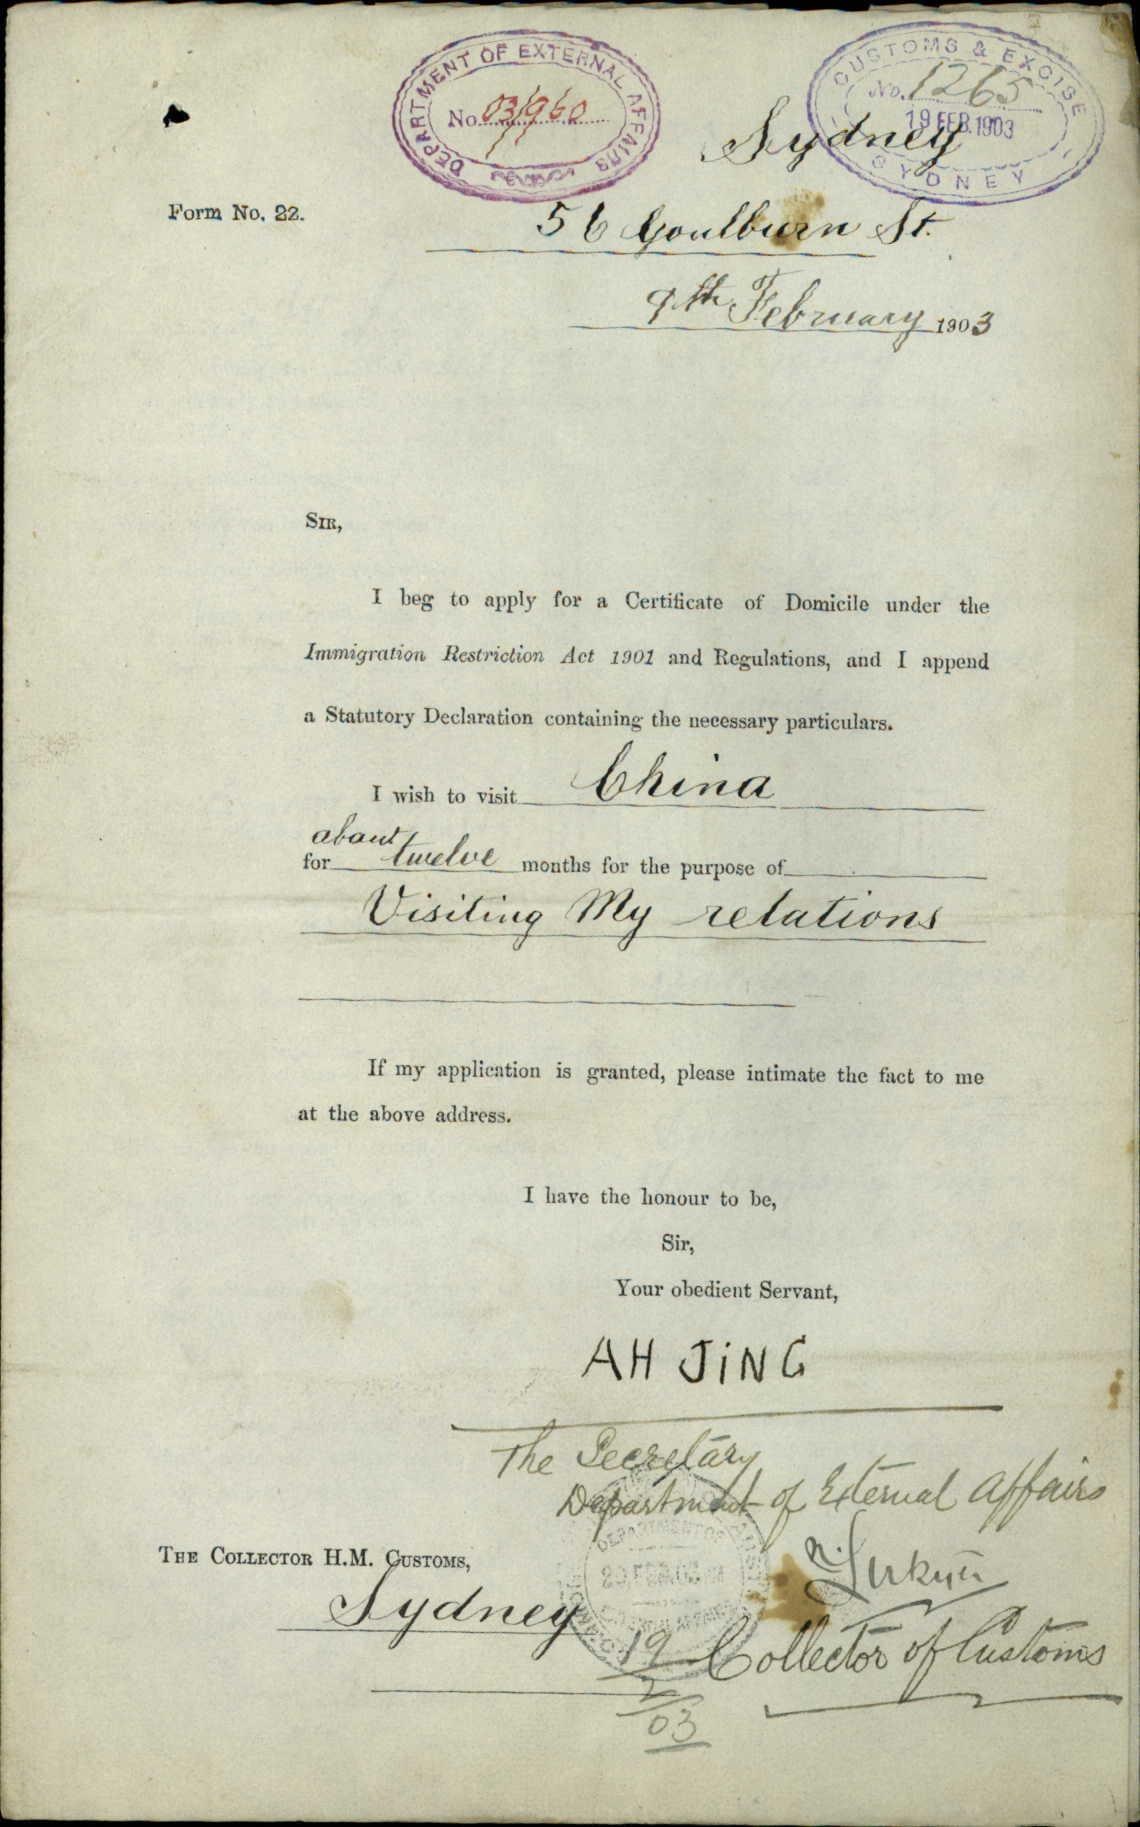 DEPARTMENT OF EXTERNAL AFFAIRS
No. 03/960
CUSTOMS & EXCISE
No. 1265
19 FEB. 1903
SYDNEY
Sydney
Form No. 22.
56 Goulburn St.
9th February 1903
SIR,
I beg to apply for a Certificate of Domicile under the
Immigration Restriction Act 1901 and Regulations, and I append
a Statutory Declaration containing the necessary particulars.
I wish to visit China
about
for twelve months for the purpose of
Visiting My relations
If my application is granted, please intimate the fact to me
at the above address.
I have the honour to be,
Sir,
Your obedient Servant,
AH JiNG
The Secretary
Department of External Affairs
THE COLLECTOR H.M. CUSTOMS,
Sydney
Collector of Customs
19
2/03